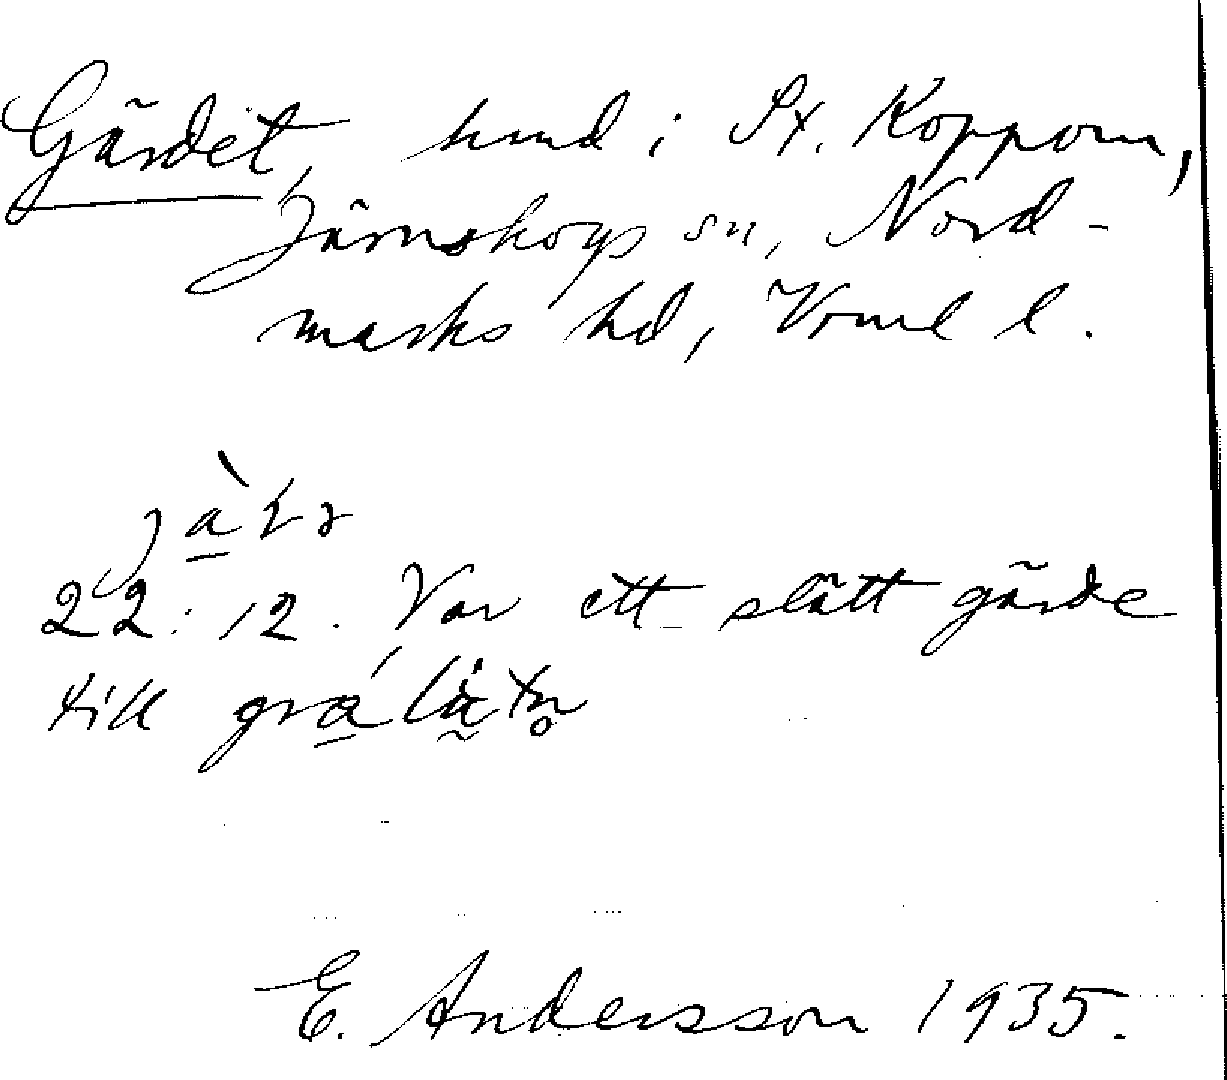 Gärdet, hmd i St. Koppom,
Järnskogs sn, Nord-
marks hd, Vrml l.
22:12. Var ett slått gärde
till
E. Andersson 1935.